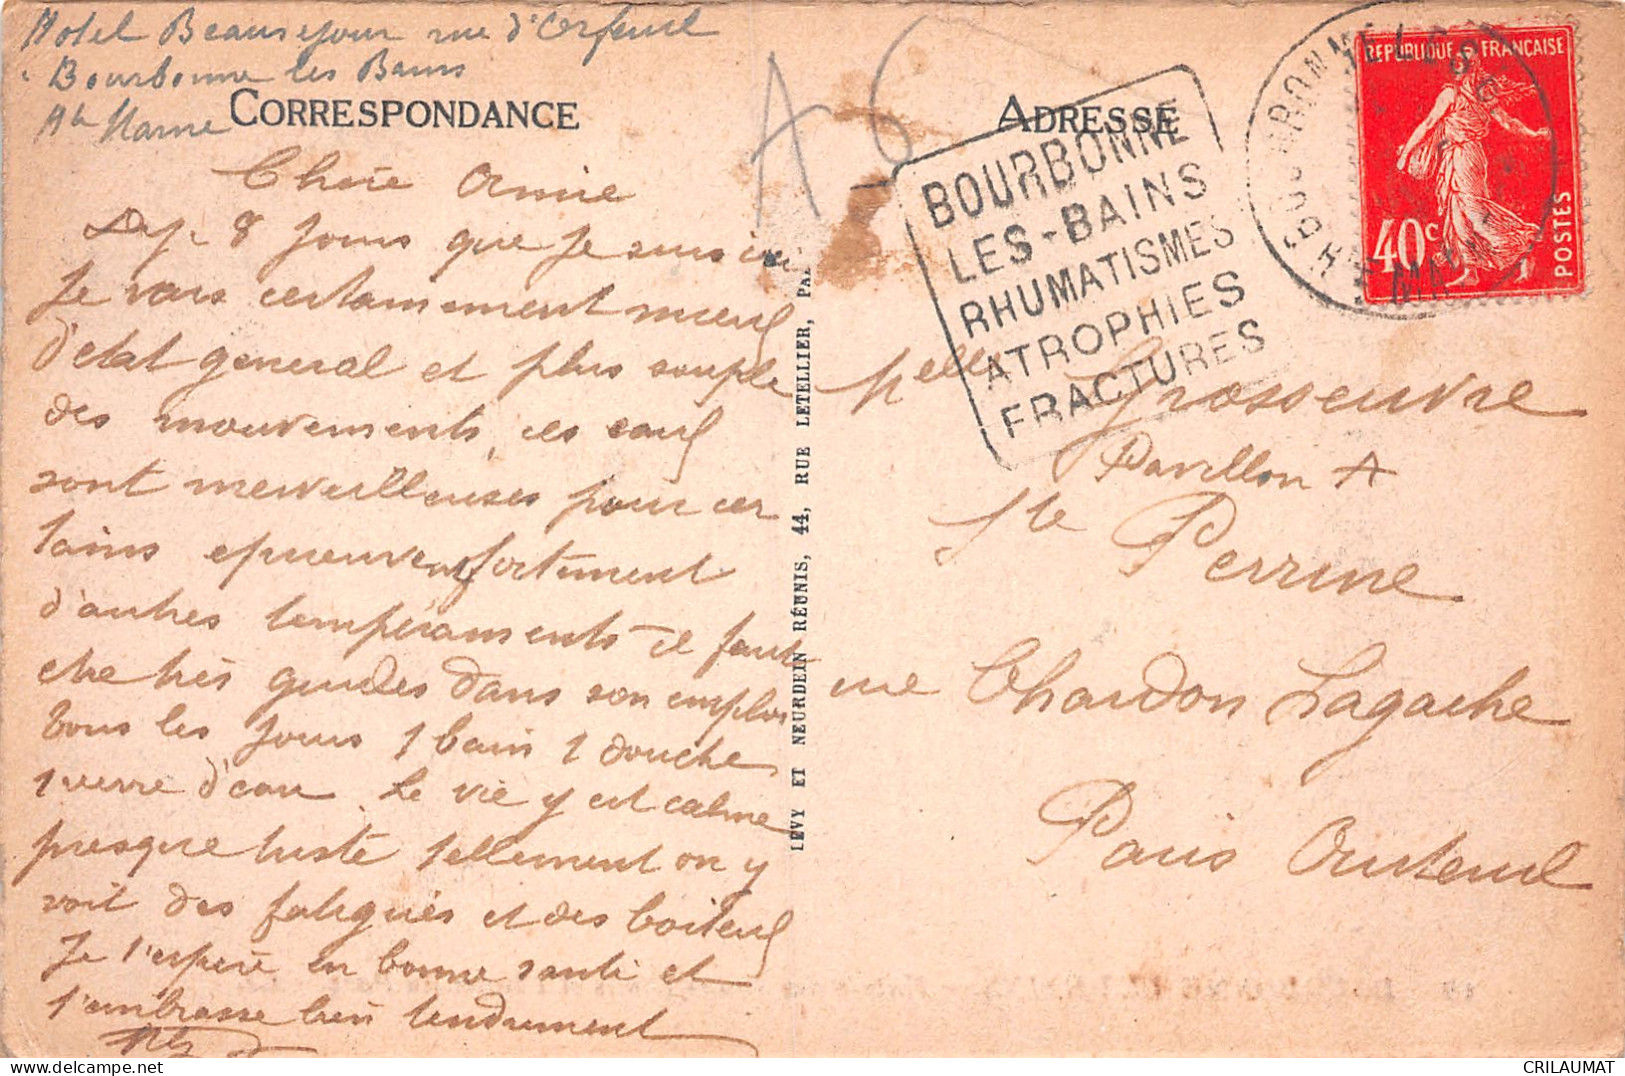 Hotel Beausejour rue d'Orfeuil
Bourbonne les Bains
Hte Marne
CORRESPONDANCE
Chère Amie
Dep. 8 jours que je suis ici
Je vais certainement mieux
d'etat general et plus souple
des mouvements, les eaux
sont merveilleuses pour cer
tains epreuvent fortement
d'autres tempéraments il faut
etre très guidés dans son emploi
tous les jours 1 bain 1 douche
1 verre d'eau. La vie y est calme
presque triste tellement on y
voit des fatigués et des boiteux
Je t'espère en bonne santé et
t'embrasse bien tendrement
LÉVY ET NEURDEIN RÉUNIS, 44, RUE LETELLIER, PA
A6
ADRESSE
BOURBONNE
LES-BAINS
RHUMATISMES
ATROPHIES
FRACTURES
REPUBLIQUE FRANÇAISE
40c
POSTES
Melle Grosseuvre
Pavillon A
Ste Perrine
rue Chardon Lagache
Paris Auteuil
CRILAUMAT